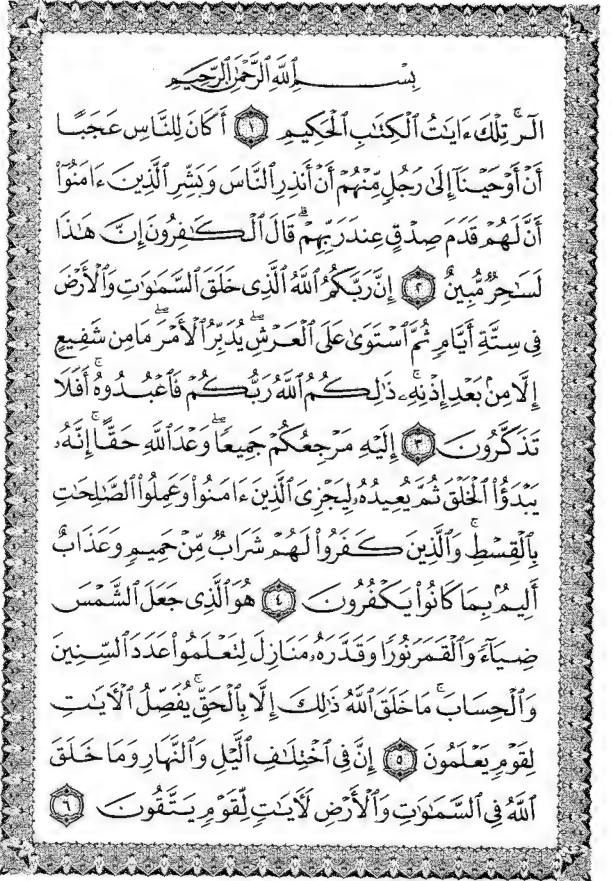 بِسْمِ ٱللَّهِ ٱلرَّحْمَٰنِ ٱلرَّحِيمِ
الٓر ۚ تِلْكَ ءَايَٰتُ ٱلْكِتَٰبِ ٱلْحَكِيمِ ١ أَكَانَ لِلنَّاسِ عَجَبًا
أَنْ أَوْحَيْنَآ إِلَىٰ رَجُلٍ مِّنْهُمْ أَنْ أَنذِرِ ٱلنَّاسَ وَبَشِّرِ ٱلَّذِينَ ءَامَنُوٓا۟
أَنَّ لَهُمْ قَدَمَ صِدْقٍ عِندَ رَبِّهِمْ ۗ قَالَ ٱلْكَٰفِرُونَ إِنَّ هَٰذَا
لَسَٰحِرٌ مُّبِينٌ ٢ إِنَّ رَبَّكُمُ ٱللَّهُ ٱلَّذِى خَلَقَ ٱلسَّمَٰوَٰتِ وَٱلْأَرْضَ
فِى سِتَّةِ أَيَّامٍ ثُمَّ ٱسْتَوَىٰ عَلَى ٱلْعَرْشِ ۖ يُدَبِّرُ ٱلْأَمْرَ ۖ مَا مِن شَفِيعٍ
إِلَّا مِنۢ بَعْدِ إِذْنِهِۦ ۚ ذَٰلِكُمُ ٱللَّهُ رَبُّكُمْ فَٱعْبُدُوهُ ۚ أَفَلَا
تَذَكَّرُونَ ٣ إِلَيْهِ مَرْجِعُكُمْ جَمِيعًا ۖ وَعْدَ ٱللَّهِ حَقًّا ۚ إِنَّهُۥ
يَبْدَؤُا۟ ٱلْخَلْقَ ثُمَّ يُعِيدُهُۥ لِيَجْزِىَ ٱلَّذِينَ ءَامَنُوا۟ وَعَمِلُوا۟ ٱلصَّٰلِحَٰتِ
بِٱلْقِسْطِ ۚ وَٱلَّذِينَ كَفَرُوا۟ لَهُمْ شَرَابٌ مِّنْ حَمِيمٍ وَعَذَابٌ
أَلِيمٌۢ بِمَا كَانُوا۟ يَكْفُرُونَ ٤ هُوَ ٱلَّذِى جَعَلَ ٱلشَّمْسَ
ضِيَآءً وَٱلْقَمَرَ نُورًا وَقَدَّرَهُۥ مَنَازِلَ لِتَعْلَمُوا۟ عَدَدَ ٱلسِّنِينَ
وَٱلْحِسَابَ ۚ مَا خَلَقَ ٱللَّهُ ذَٰلِكَ إِلَّا بِٱلْحَقِّ ۚ يُفَصِّلُ ٱلْأَيَٰتِ
لِقَوْمٍ يَعْلَمُونَ ٥ إِنَّ فِى ٱخْتِلَٰفِ ٱلَّيْلِ وَٱلنَّهَارِ وَمَا خَلَقَ
ٱللَّهُ فِى ٱلسَّمَٰوَٰتِ وَٱلْأَرْضِ لَأَيَٰتٍ لِّقَوْمٍ يَتَّقُونَ ٦